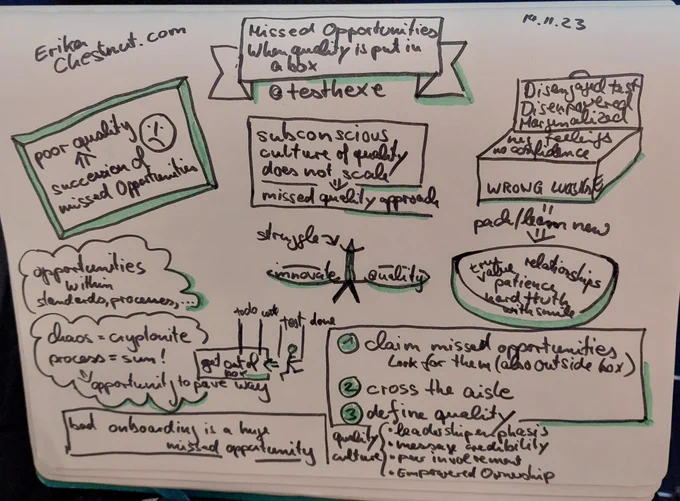 Erika
Chestnut.com
Missed Opportunities
When quality is put in
a box
@testhexe
14.11.23
poor quality
succession of
missed Opportunities
subconscious
culture of quality
does not scale
missed quality approach
Disengaged test
Disempowered
Marginalized
feelings
no confidence
WRONG
pack/learn new
true
value
relationships
patience
hard truth
with smile
struggle
innovate
quality
opportunities
within
standards, processes, ...
chaos = cryptonite
process = sun!
opportunity to pave way
todo
test
done
get out of
box
1 claim missed opportunities
Look for them (also outside box)
2 cross the aisle
3 define quality
quality
culture
• leadership emphasis
• message credibility
• peer involvement
• Empowered Ownership
bad onboarding is a huge
missed opportunity